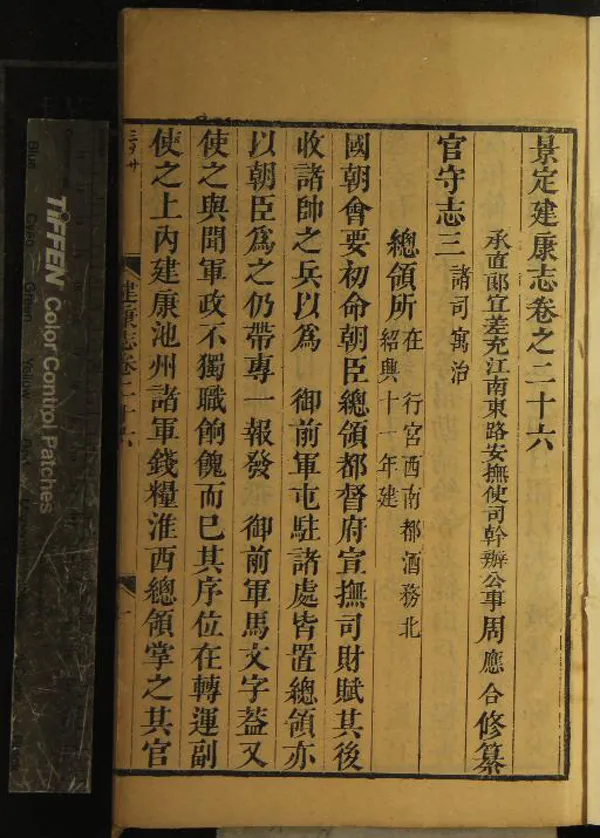 景定建康志卷之二十六
承直郎宜差充江南東路安撫使司幹辦公事周應合修纂
官守志三 諸司寓治
總領所 在 行宮西南都酒務北
紹興十一年建
國朝會要初命朝臣總領都督府宣撫司財賦其後
收諸帥之兵以爲 御前軍屯駐諸處皆置總領亦
以朝臣爲之仍帶專一報發 御前軍馬文字蓋又
使之與聞軍政不獨職餉餽而已其序位在轉運副
使之上內建康池州諸軍錢糧淮西總領掌之其官
建康志卷二十六
一
TIFFEN Color Control Patches
Blue
Cyan
Green
Yellow